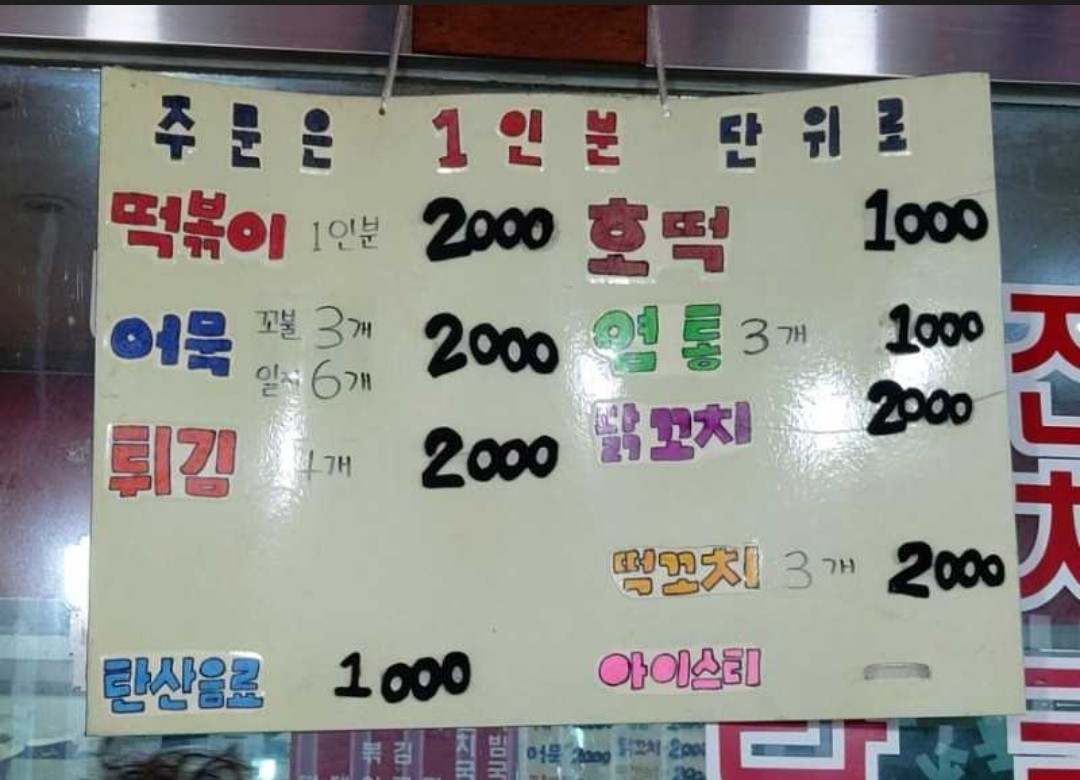 주문은 1인분 단위로
떡볶이 1인분 2000
호떡 1000
어묵 꼬불 3개 2000
일자 6개
염통 3개 1000
튀김 개 2000
닭꼬치 2000
떡꼬치 3개 2000
탄산음료 1000
아이스티
어묵 2000 닭꼬치 2000